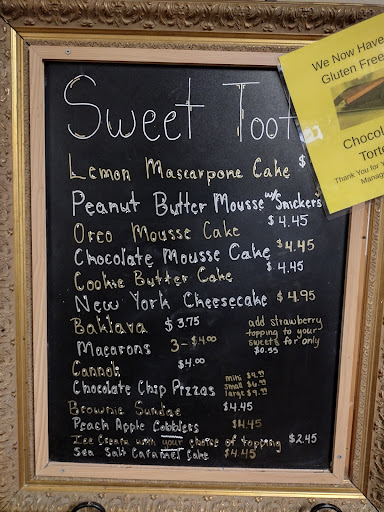 Sweet Toot
We Now Have
Gluten Free
Chocol
Torte
Thank You for Y
Manag
Lemon Mascarpone Cake $
Peanut Butter Mousse w/ Snickers
$4.45
Oreo Mousse Cake
Chocolate Mousse Cake $4.45
$4.45
Cookie Butter Cake
New York Cheesecake $4.95
Baklava $3.75
add strawberry
topping to your
sweets for only
$0.55
Macarons 3-$4.00
Cannoli $4.00
Chocolate Chip Pizzas
mini
small
large
Brownie Sundae $4.45
Peach Apple Cobblers $4.45
Ice Cream with your choice of topping $2.45
Sea Salt Caramel Cake $4.45